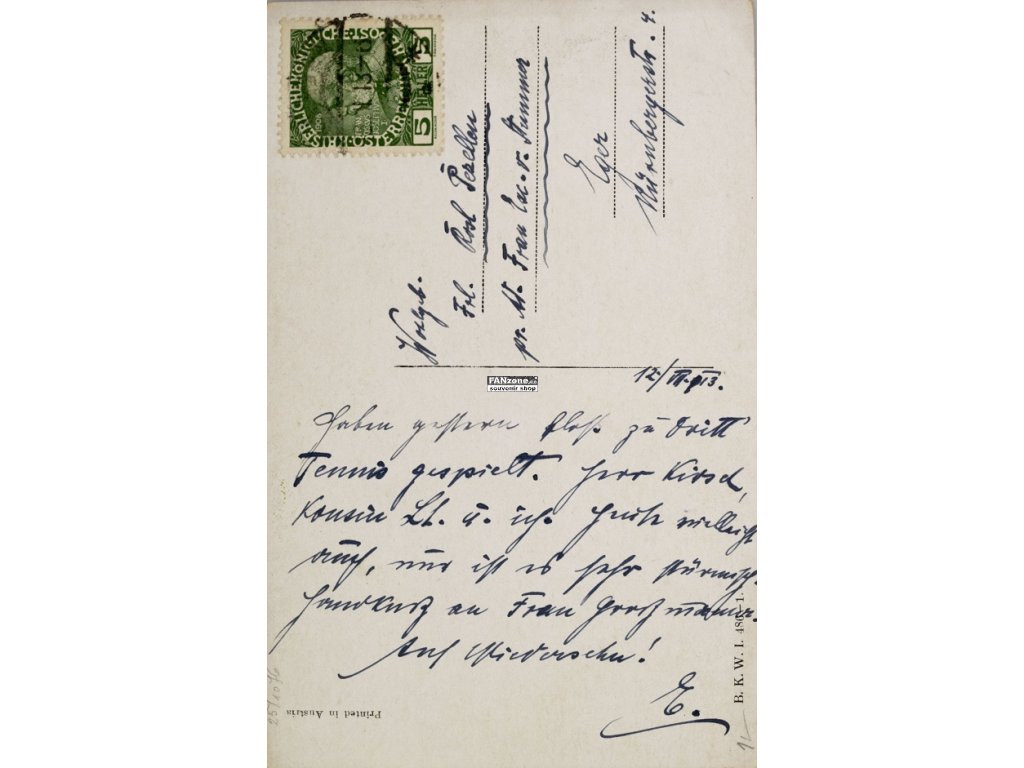 KAISERLICHE KÖNIGLICHE ÖSTERREICHISCHE POST
5 HELLER 5
13
Wohlgeb.
Frl. Rosl
pr. Ad. Frau v. Stummer
Eger
Nürnbergerstr. 4.
FANzone.cz
souvenir shop
12/ 913.
Haben gestern bloß zu dritt
Tennis gespielt. Herr Kirsch,
Kousin Lt. u. ich. Heute vielleicht
auch, nur ist es sehr stürmisch.
Handkuß an Frau Großmama.
Auf Wiedersehn!
E.
B. K. W. I.
Printed in Austria